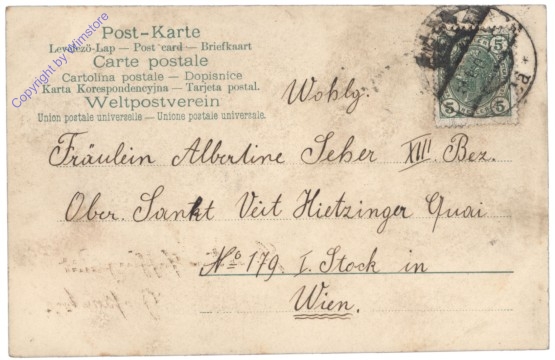 Post-Karte
Levelező-Lap — Post card — Briefkaart
Carte postale
Cartolina postale — Dopisnice
Karta Korespondencyjna — Tarjeta postal.
Weltpostverein
Union postale universelle — Unione postale universale.
Copyright by Mimstore
5 5
Wohlg.
Fräulein Albertine Seher XIII. Bez.
Ober. Sankt Veit Hietzinger Quai
No 179 I. Stock in
Wien.